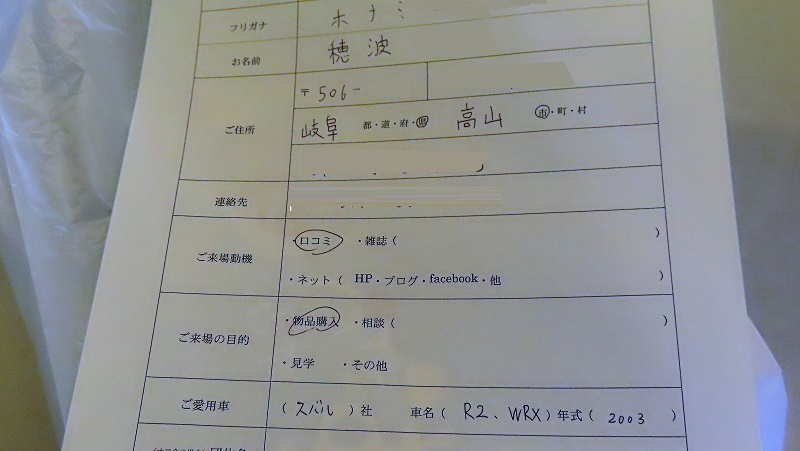 フリガナ ホナミ
お名前 穂波
〒506-
ご住所 岐阜 都・道・府・県 高山 市・町・村
連絡先
ご来場動機 ・口コミ ・雑誌( )
・ネット( HP・ブログ・facebook・他 )
ご来場の目的 ・物品購入 ・相談( )
・見学 ・その他
ご愛用車 (スバル)社 車名(R2、WRX)年式(2003)